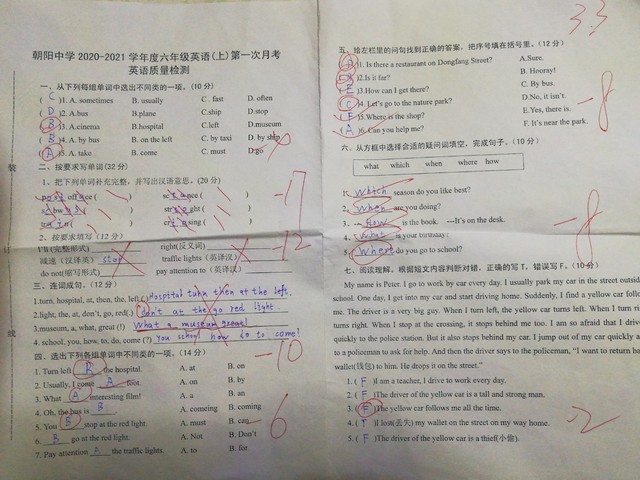 朝阳中学2020-2021学年度六年级英语(上)第一次月考
英语质量检测
一、从下列每组单词中选出不同类的一项。(10分)
( C )1. A. sometimes B. usually C. fast D. often
( D )2. A.bus B.plane C.ship D.stop
( B )3. A.cinema B.hospital C.left D.museum
( B )4. A. by bus B. on the left C. by taxi D. by ship
( A )5. A. take B. come C. must D.go
二、按要求写单词(32分)
1、把下列单词补充完整，并写出汉语意思。(20分)
-17
2、按要求填写(12分)
I'll(完整形式) right(反义词)
减速（汉译英） stop traffic lights（英译汉）
do not(缩写形式) pay attention to（英译汉）
-12
三、连词成句。(12分)
1.turn, hospital, at, then, the, left(.) Hospital turn then at the left.
2.light, the, at, don't, go, red(.) don't at the go red light.
3.museum, a, what, great (!) What a museum great!
4. school, you, how, to, do, come (?) you school how do to come!
-10
四、选出下列各组单词中不同类的一项。(14分)
1. Turn left B the hospital. A. at B. on
2. Usually, I come B foot. A. on B. by
3. What A interesting film! A. a B. an
4. Oh, the bus is B A. comeing B. coming
5. You B stop at the red light. A. must B. can
6. B go at the red light. A. Not B. Don't
7. Pay attention A the traffic lights. A. to B. for
-6
装
线
33
五、给左栏里的问句找到正确的答案，把序号填在括号里。(12分)
)1. Is there a restaurant on Dongfang Street? A.Sure.
)2.Is it far? B. Hooray!
( E )3.How can I get there? C. By bus.
( C )4. Let's go to the nature park? D.No, it isn't.
( F )5.Where is the shop? E.Yes, there is.
( A )6.Can you help me? F. It's near the park.
-8
六、从方框中选择合适的疑问词填空，完成句子。(10分)
what which when where how
1. which season do you like best?
2. when are you doing?
3. how is the book. ---It's on the desk.
4. what is your birthday?
5. where do you go to school?
-8
七、阅读理解。根据短文内容判断对错，正确的写T，错误写F。(10分)
My name is Peter. I go to work by car every day. I usually park my car in the street outside
school. One day, I get into my car and start driving home. Suddenly, I find a yellow car follo
me. The driver is a very big guy. When I turn left, the yellow car turns left. When I turn ri
turns right. When I stop at the crossing, it stops behind me too. I am so afraid that I driv
quickly to the police station. But it also stops behind my car. I jump out of my car quickly a
to a policeman to ask for help. And then the driver says to the policeman, "I want to return ba
wallet(钱包) to him. He drops it on the street."
1. ( F )I am a teacher, I drive to work every day.
2. ( F )The driver of the yellow car is a tall and strong man.
3. ( F )The yellow car follows me all the time.
4. ( T )I lost(丢失) my wallet on the street on my way home.
5. ( F )The driver of the yellow car is a thief(小偷).
-2